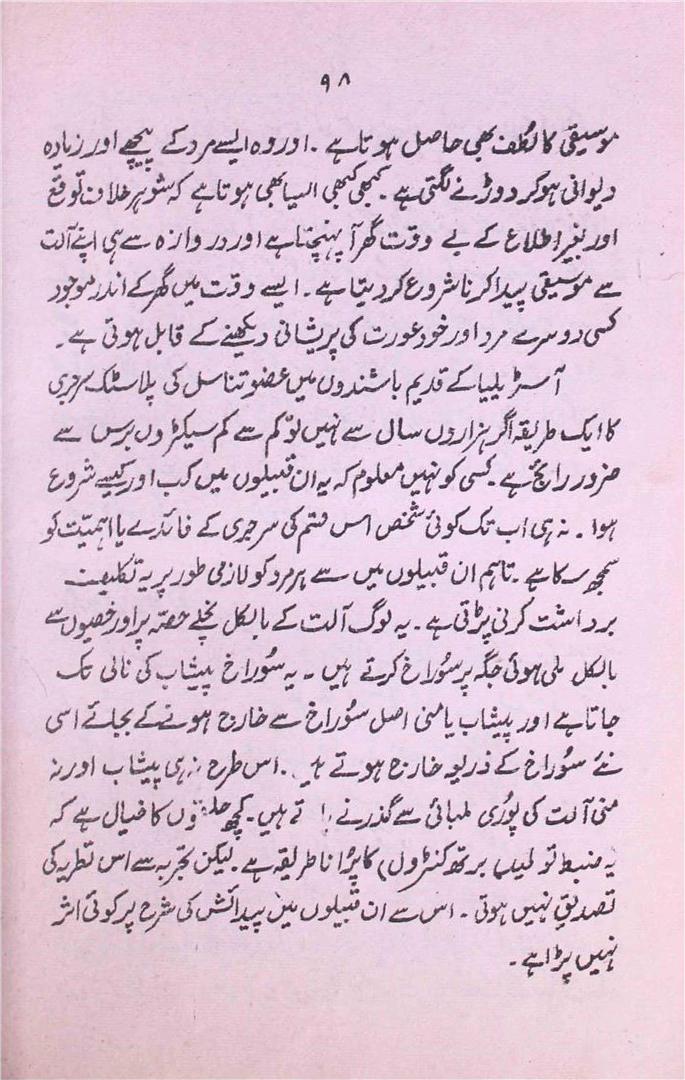 ۹۸
موسیقی کا لطف بھی حاصل ہوتا ہے ۔ اور وہ ایسے مرد کے پیچھے اور زیادہ
دیوانی ہوکر دوڑنے لگتی ہے ۔ کبھی کبھی ایسا بھی ہوتا ہے کہ شوہر خلاف توقع
اور بغیر اطلاع کے بے وقت گھر آ پہنچتا ہے اور دروازہ سے ہی اپنے آلت
سے موسیقی پیدا کرنا شروع کر دیتا ہے ۔ ایسے وقت میں گھر کے اندر موجود
کسی دوسرے مرد اور خود عورت کی پریشانی دیکھنے کے قابل ہوتی ہے ۔
آسٹریلیا کے قدیم باشندوں میں عضو تناسل کی پلاسٹک سرجری
کا ایک طریقہ اگر ہزاروں سال سے نہیں تو کم سے کم سیکڑوں برس سے
ضرور رائج ہے ۔ کسی کو نہیں معلوم کہ یہ ان قبیلوں میں کب اور کیسے شروع
ہوا ۔ نہ ہی اب تک کوئی شخص اس قسم کی سرجری کے فائدے یا اہمیّت کو
سمجھ سکا ہے ۔ تاہم ان قبیلوں میں سے ہر مرد کو لازمی طور پر یہ تکلیف
برداشت کرنی پڑتی ہے ۔ یہ لوگ آلت کے بالکل نچلے حصّہ پر اور خصیوں سے
بالکل ملی ہوئی جگہ پر سوُراخ کرتے ہیں ۔ یہ سوُراخ پیشاب کی نالی تک
جاتا ہے اور پیشاب یا منی اصل سوُراخ سے خارج ہونے کے بجائے اسی
نئے سوُراخ کے ذریعہ خارج ہوتے ہیں ۔ اس طرح نہ ہی پیشاب اور نہ
منی آلت کی پوُری لمبائی سے گذرنے پاتے ہیں ۔ کچھ حلقوں کا خیال ہے کہ
یہ ضبط تولید (برتھ کنٹرول) کا پرُانا طریقہ ہے ۔ لیکن تجربہ سے اس نظریہ کی
تصدیق نہیں ہوتی ۔ اس سے ان قبیلوں میں پیدائش کی شرح پر کوئی اثر
نہیں پڑا ہے ۔